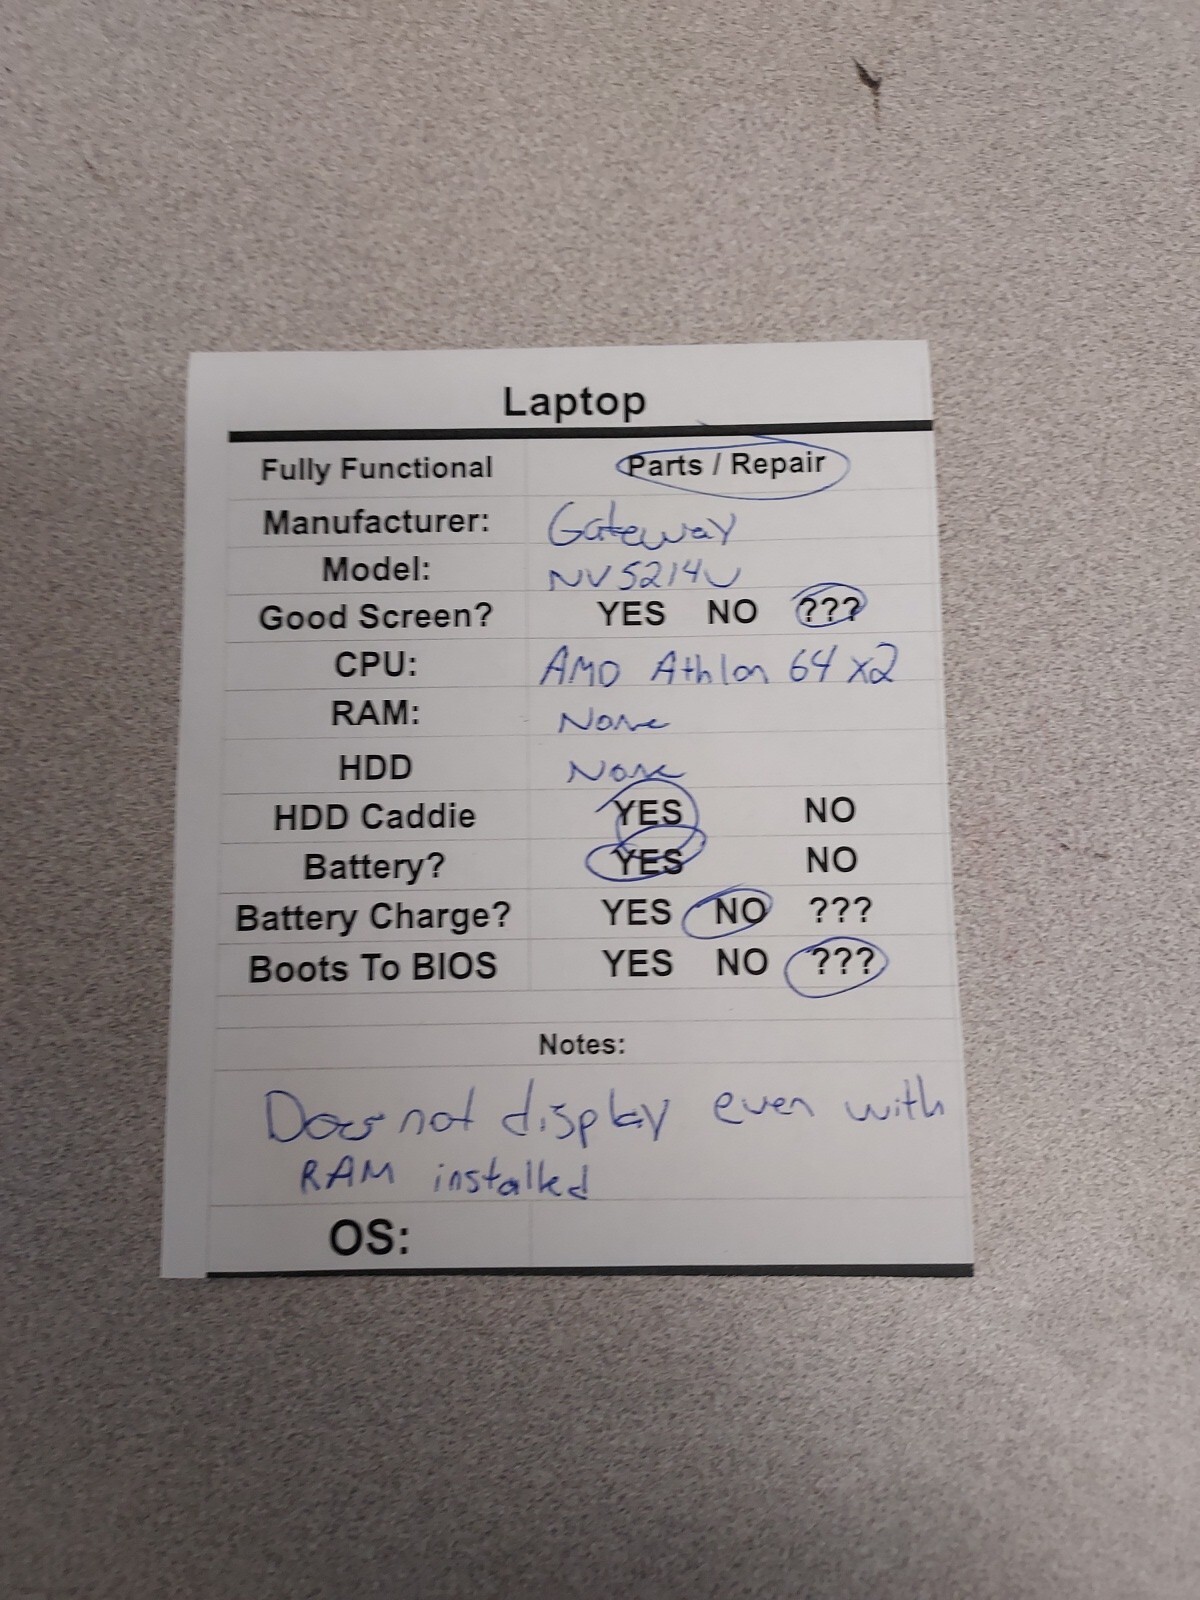 Laptop
Fully Functional Parts / Repair
Manufacturer: Gateway
Model: NV5214U
Good Screen? YES NO ???
CPU: AMD Athlon 64 x2
RAM: None
HDD None
HDD Caddie YES NO
Battery? YES NO
Battery Charge? YES NO ???
Boots To BIOS YES NO ???
Notes:
Does not display even with
RAM installed
OS: